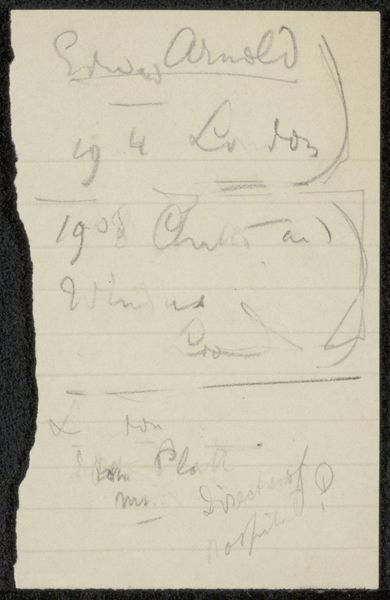 Edward Arnold
19 4 London
1908 Chatto and
Windus
London
Platt
Mr. Director of
hospital?